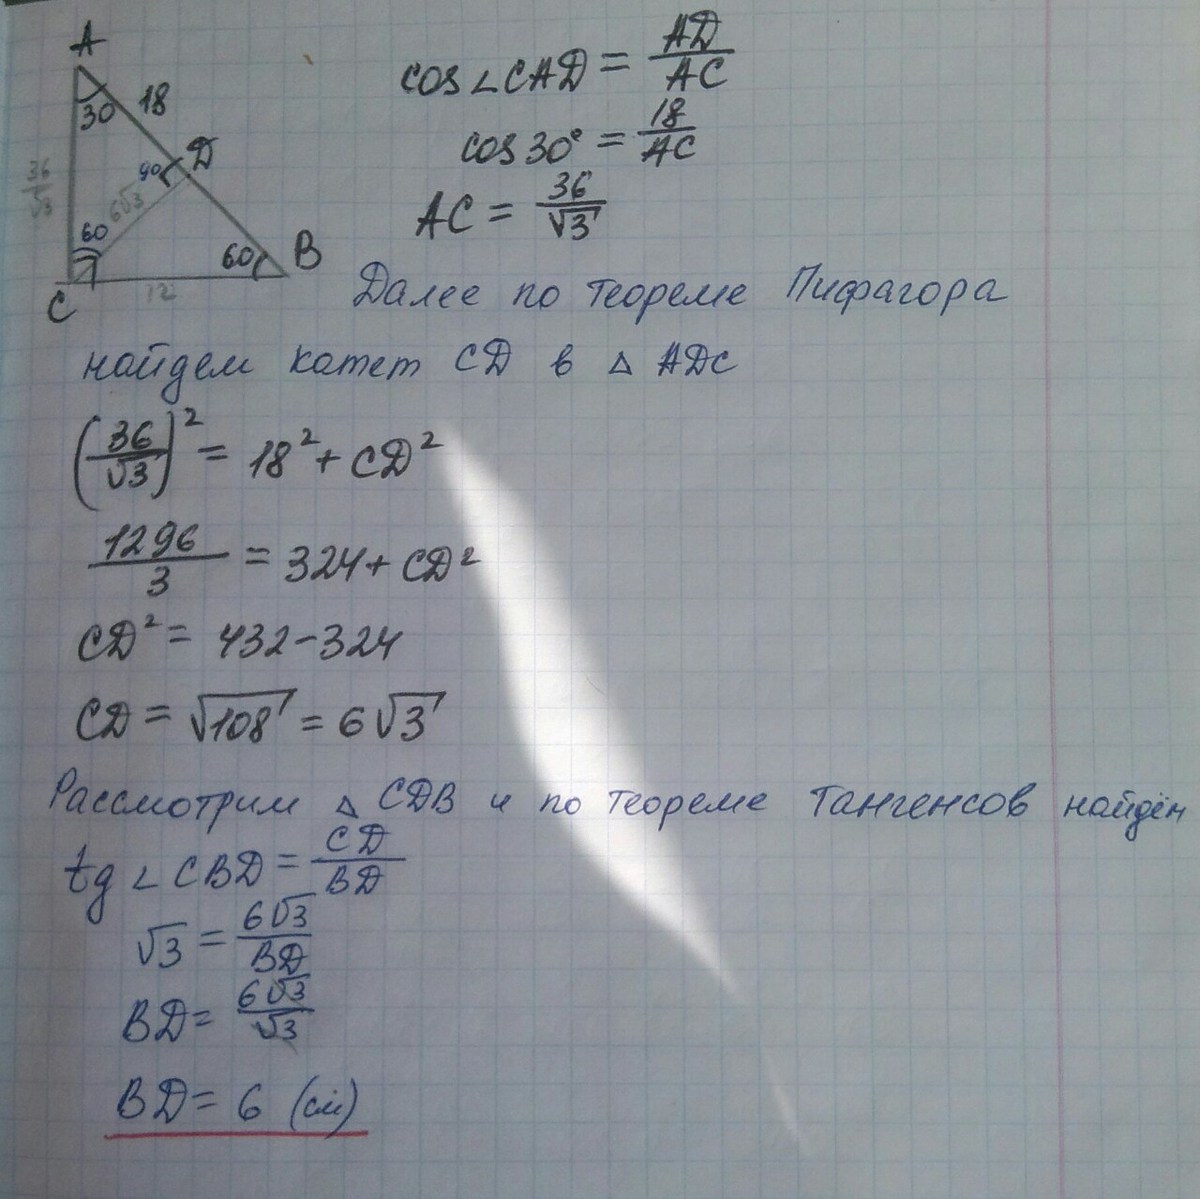 A
30
18
90
D
36/√3
6√3
60
60
B
C
12
cos∠CAD = AD/AC
cos 30° = 18/AC
AC = 36/√3
Далее по теореме Пифагора
найдем катет CD в △ ADC
(36/√3)² = 18² + CD²
1296/3 = 324 + CD²
CD² = 432 - 324
CD = √108 = 6√3
Рассмотрим △ CDB и по теореме тангенсов найдён
tg ∠ CBD = CD/BD
√3 = 6√3/BD
BD = 6√3/√3
BD = 6 (см)